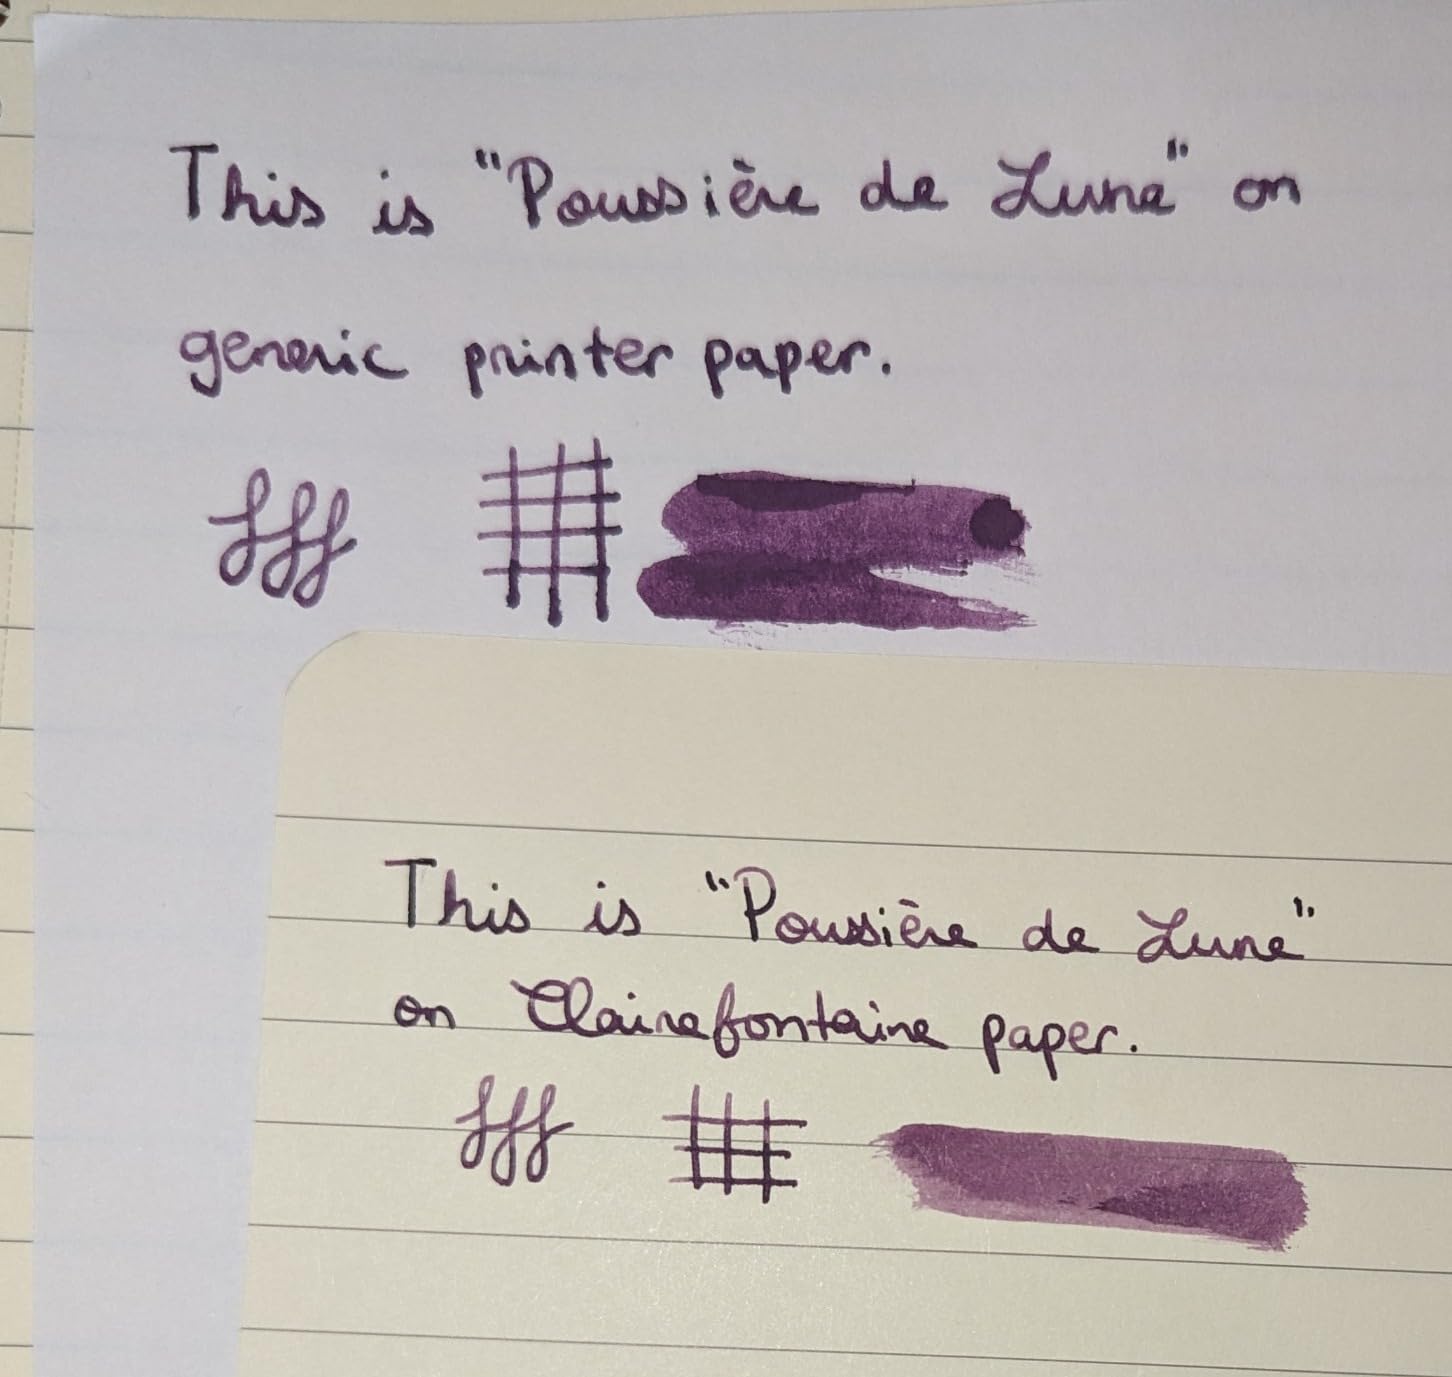 This is "Poussière de Lune" on
generic printer paper.
fff
This is "Poussière de Lune"
on Clairefontaine paper.
fff